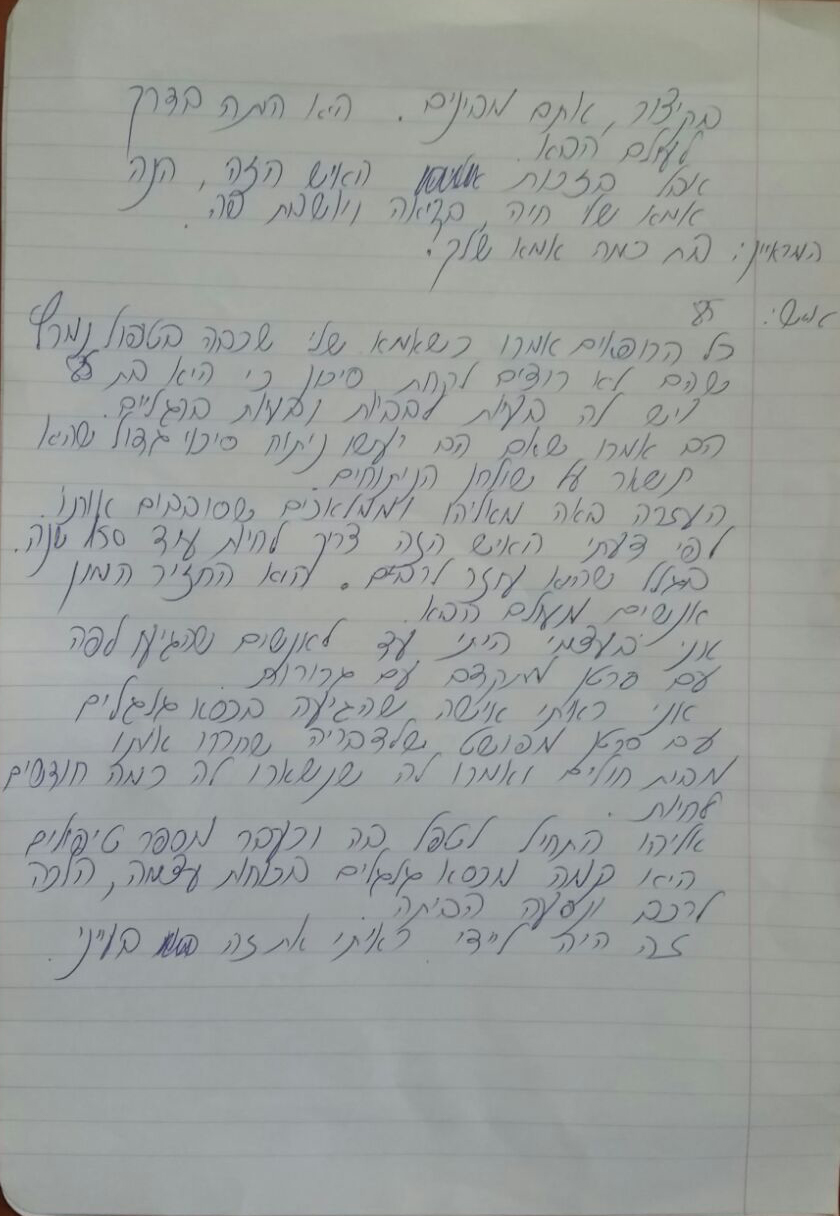 בקיצור, אתם מבינים. היא היתה בדרך
לעולם הבא.
אבל בזכות האיש הזה, הנה
אמא שלי חיה, בריאה ויושבת פה.
המראיין: בת כמה אמא שלך?
כל הרופאים אמרו כשאמא שלי שכבה בטפול נמרץ
שהם לא רוצים לקחת סיכון כי היא בת
ויש לה בעיות לבביות ובעיות ברגליים.
הם אמרו שאם הם יעשו ניתוח סיכוי גדול שהיא
תשאר על שולחן הניתוחים.
העזרה באה מאליהו וממלאכים שסובבים אותו.
לפי דעתי האיש הזה צריך לחיות עוד 250 שנה.
בגלל שהוא עוזר לרבים. הוא החזיר המון
אנשים מעולם הבא.
אני בעצמי הייתי עד לאנשים שהגיעו לפה
עם סרטן מתקדם עם גרורות.
אני ראיתי אישה שהגיעה בכסא גלגלים
עם סרטן מפושט שלדבריה שחררו אותו
מבית חולים ואמרו לה שנשארו לה כמה חודשים
לחיות.
אליהו התחיל לטפל בה וכעבר מספר טיפולים
היא קמה מכסא גלגלים בכוחות עצמה, הלכה
לרכב ונסעה הביתה.
זה היה לידי ראיתי את זה בעייני.